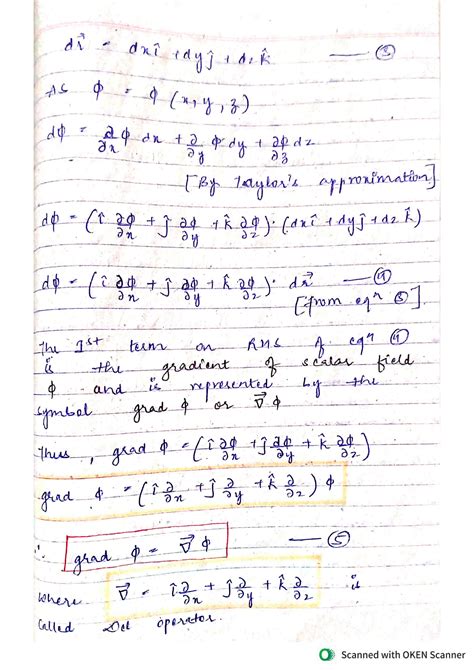 dr⃗ = dxî + dyĵ + dz k̂ —— ③
As ϕ = ϕ (x, y, z)
dϕ = ∂/∂x ϕ dx + ∂/∂y ϕ dy + ∂ϕ/∂z dz
[By Taylor's approximation]
dϕ = (î ∂ϕ/∂x + ĵ ∂ϕ/∂y + k̂ ∂ϕ/∂z) · (dxî + dyĵ + dz k̂)
dϕ = (î ∂ϕ/∂x + ĵ ∂ϕ/∂y + k̂ ∂ϕ/∂z) · dr⃗ —— ④
[from eqⁿ ③].
The 1st term on RHS of eqⁿ ④
is the gradient of scalar field
ϕ and is represented by the
symbol grad ϕ or ∇⃗ ϕ
Thus, grad ϕ = (î ∂ϕ/∂x + ĵ ∂ϕ/∂y + k̂ ∂ϕ/∂z)
grad ϕ = (î ∂/∂x + ĵ ∂/∂y + k̂ ∂/∂z) ϕ
∴ grad ϕ = ∇⃗ ϕ —— ⑤
where ∇⃗ = î ∂/∂x + ĵ ∂/∂y + k̂ ∂/∂z is
called Del operator.
Scanned with OKEN Scanner